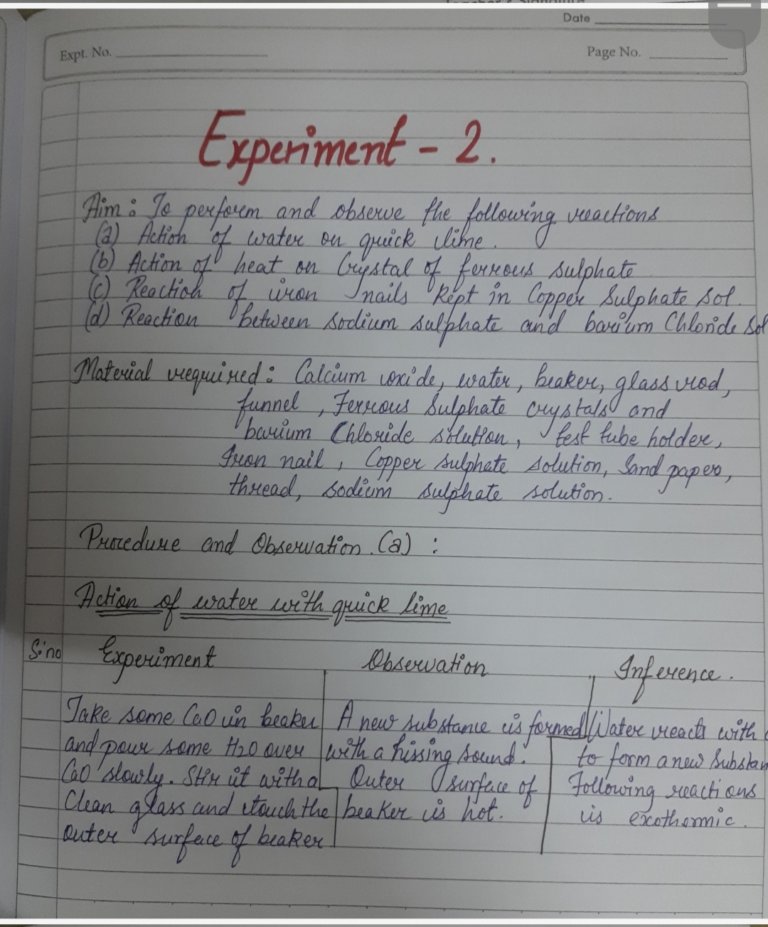 Date
Expt. No.
Page No.
Experiment - 2.
Aim : To perform and observe the following reactions
(a) Action of water on quick lime.
(b) Action of heat on Crystal of ferrous sulphate
(c) Reaction of iron nails kept in Copper Sulphate sol.
(d) Reaction between sodium sulphate and barium Chloride sol
Material required : Calcium oxide, water, beaker, glass rod,
funnel , Ferrous Sulphate crystals and
barium Chloride solution, test tube holder,
Iron nail, Copper sulphate solution, Sand paper,
thread, sodium sulphate solution.
Procedure and Observation (a) :
Action of water with quick lime
S.no Experiment Observation Inference.
Take some CaO in beaker A new substance is formed Water reacts with
and pour some H2O over with a hissing sound. to form a new Substan
CaO slowly. Stir it with a Outer surface of Following reactions
Clean glass and touch the beaker is hot. is exothermic.
outer surface of beaker